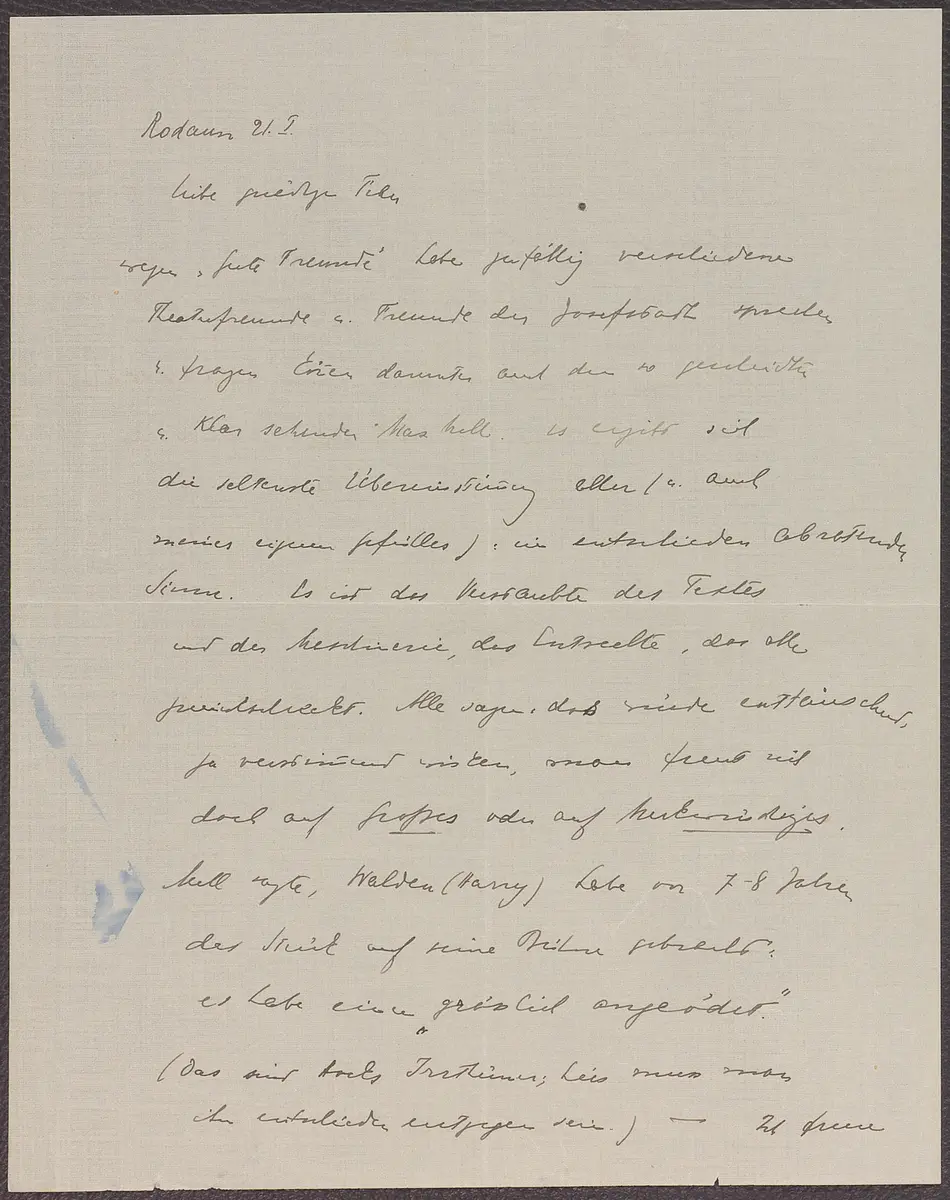 Rodaun 21. I.
liebe gnädige Frau
wegen „Gute Freunde" habe zufällig verschiedene
Theaterfreunde u. Freunde der Josefstadt sprechen
u. fragen können darunter auch den so gescheidten
u. klar sehenden Max Mell. Es ergibt sich
die seltenste Übereinstimmung aller (u. auch
meines eigenen Gefühles): im entschieden abratenden
Sinne. Es ist das Verstaubte des Textes
und der Maschinerie, das Entseelte, das alle
zurückschreckt. Alle sagen: das würde enttäuschend,
ja verstimmend wirken, man freut sich
doch auf Großes oder auf Merkwürdiges.
Mell sagte, Walden (Harry) habe vor 7-8 Jahren
das Stück auf seine Bühne gebracht:
es habe einen „grässlich angeödet."
(Das sind Irrthümer; hier muss man
ihm entschieden entgegen sein.) — Ich freue